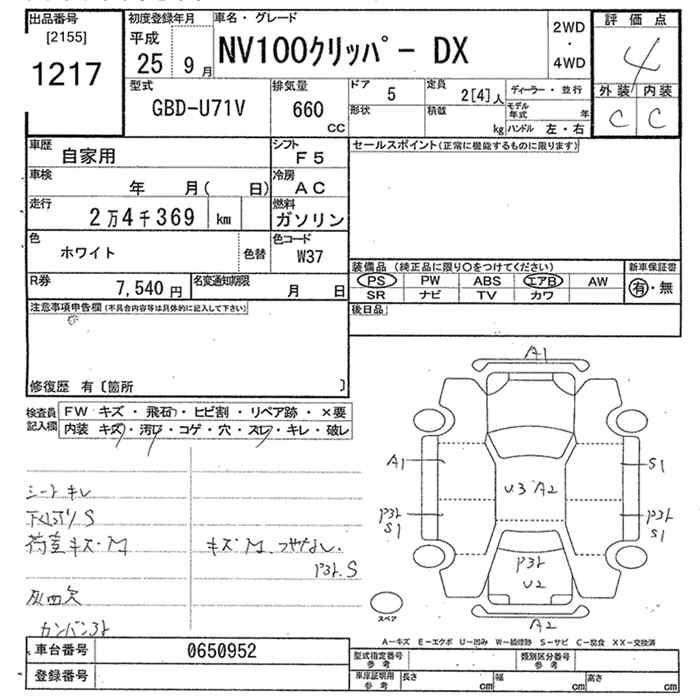 出品番号
[2155]
1217
初度登録年月
平成
25 9月
車名・グレード
NV100クリッパー DX
2WD
・
4WD
評価点
4
外装 内装
C C
型式
GBD-U71V
排気量
660
CC
ドア
5
定員
2[4]人
形状
積載
kg
ディーラー・並行
モデル年式 年
ハンドル 左・右
車歴
自家用
シフト
F5
車検
年 月( 日)
冷房
AC
走行
2万4千369 km
燃料
ガソリン
色
ホワイト
色替
色コード
W37
R券
7,540円
名変通知期限
月 日
セールスポイント(正常に機能するものに限ります)
装備品 (純正品に限り○をつけてください)
PS PW ABS エアB AW
SR ナビ TV カワ
新車保証書
有・無
後日品
注意事項申告欄(不具合内容等は具体的に記入して下さい)
修復歴 有〔箇所 〕
検査員記入欄
FW キズ・飛石・ヒビ割・リペア跡・×要
内装 キズ・汚レ・コゲ・穴・スレ・キレ・破レ
シートキレ
下廻りS
荷室キズ・M
キズM つやなし、
灰皿欠
カンバン跡
A1
A1
S1
U3 A2
S1
S1
U2
A2
スペア
A―キズ E―エクボ U―凹み W―補修跡 S―サビ C―腐食 XX―交換済
車台番号
0650952
登録番号
型式指定番号
参考
類別区分番号
参考
車庫証明用
参考
長さ cm
幅 cm
高さ cm